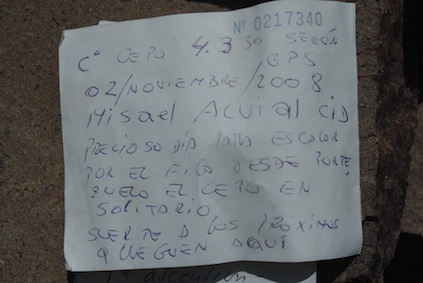 Nº 0217340
Cº CEPO 4.330 SEGÚN
GPS
02/NOVIEMBRE/2008
Misael Alvial Cid
PRECIOSO DÍA PARA ESCALAR
POR EL FILO DESDE PORTE
ZUELO EL CEPO EN
SOLITARIO
SUERTE A LOS PRÓXIMOS
QUE LLEGUEN AQUÍ